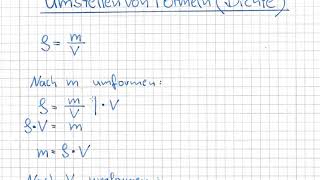 Umstellen von Formeln (Dichte)
ρ = m/V
Nach m umformen:
ρ = m/V | · V
ρ · V = m
m = ρ · V
Nach V umformen: